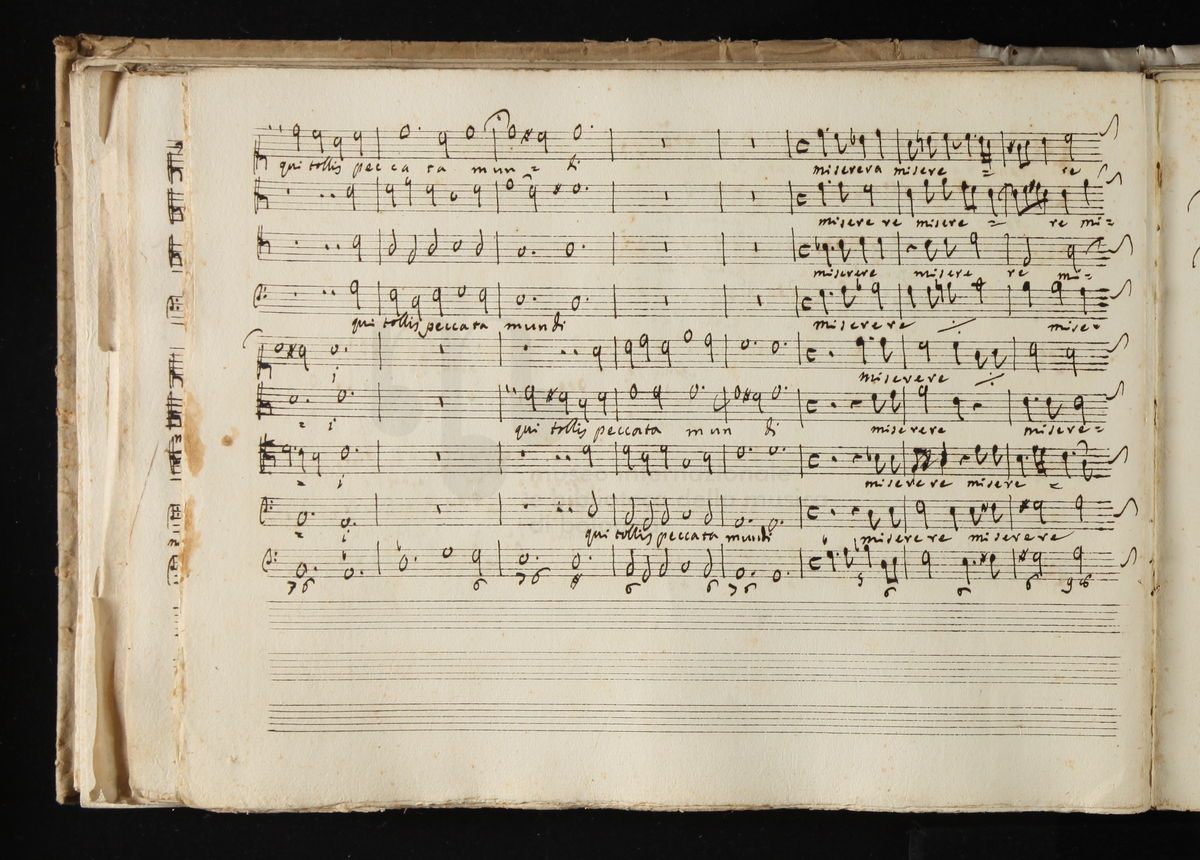 qui tollis pec ca ta mun = di miserera misere = re
misere re misere = re mi=
miserere misere re mi=
qui tollis peccata mundi miserere ⁒ misere
i miserere ⁒
= i qui tollis peccata mun di miserere misere=
= i miserere misere =
= i qui tollis peccata mundi miserere miserere
7 6 6 7 6 6 6 7 6 5 6 6 6